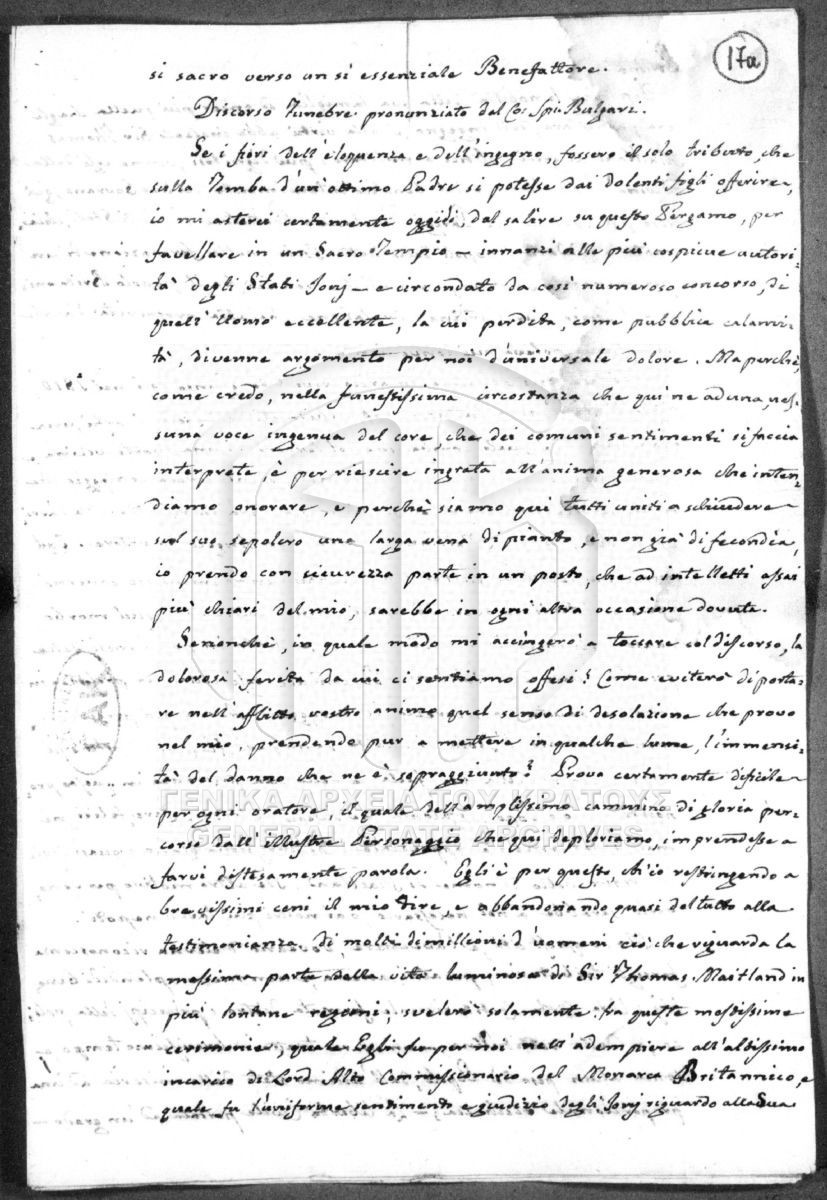 17α
si sacro verso un si essenziale Benefattore.
Discorso Funebre pronunziato dal Co: Spi: Bulgari.
Se i fiori dell'eloquenza e dell'ingegno, fossero il solo tributo, che
sulla Tomba d'un'ottimo Padre si potesse dai dolenti figli offerire,
io mi asterei certamente oggidì, dal salire su questo Pergamo, per
favellare in un Sacro Tempio – innanzi alle più cospicue autori:
tà degli Stati Jonj – e circondato da così numeroso concorso, di
quell'Uomo eccellente, la cui perdita, come pubblica calami:
tà, divenne argomento per noi d'universale dolore. Ma perchè,
come credo, nella funestissima circostanza che quì ne aduna, nes:
suna voce ingenua del core che dei comuni sentimenti si faccia
interprete, è per riescire ingrata all'anima generosa che inten:
diamo onorare, e perchè siamo quì tutti uniti a schiudere
sul suo sepolcro una larga vena di pianto, e non già di fecondia,
io prendo con sicurezza parte in un posto, che ad intelletti assai
più chiari del mio, sarebbe in ogni altra occasione dovuta.
Senonchè, in quale modo mi accingerò a toccare col discorso, la
dolorosa ferita da cui ci sentiamo offesi? Come eviterò di porta:
re nell'afflitto vostro animo quel senso di desolazione che provo
nel mio, prendendo pur a mettere in qualche lume, l'immensi:
tà del danno che ne è sopraggiunto? Prova certamente dificile
per ogni oratore, il quale dell'amplissimo cammino di gloria per:
corso dall'illustre Personaggio che quì deploriamo, imprendesse a
farvi distesamente parola. Egli è per questo, ch'io restringendo a
brevissimi ceni il mio dire, e abbandonando quasi del tutto alla
testimonianza di molti dimillioni d'uomeni ciò che riguarda la
messima parte della vita luminosa di Sir Thomas Maitland in
più lontane regioni, svelerò solamente fra queste mestissime
cerimonie, quale Egli fu per noi nell'adempiere all'altissimo
incarico di Lord Alto Commissionario del Monarca Britannico, e
quale fu l'uniforme sentimento e giudizio degli Jonj riguardo alla Sua
ΓΕΝΙΚΑ ΑΡΧΕΙΑ ΤΟΥ ΚΡΑΤΟΥΣ
GENERAL STATE ARCHIVES